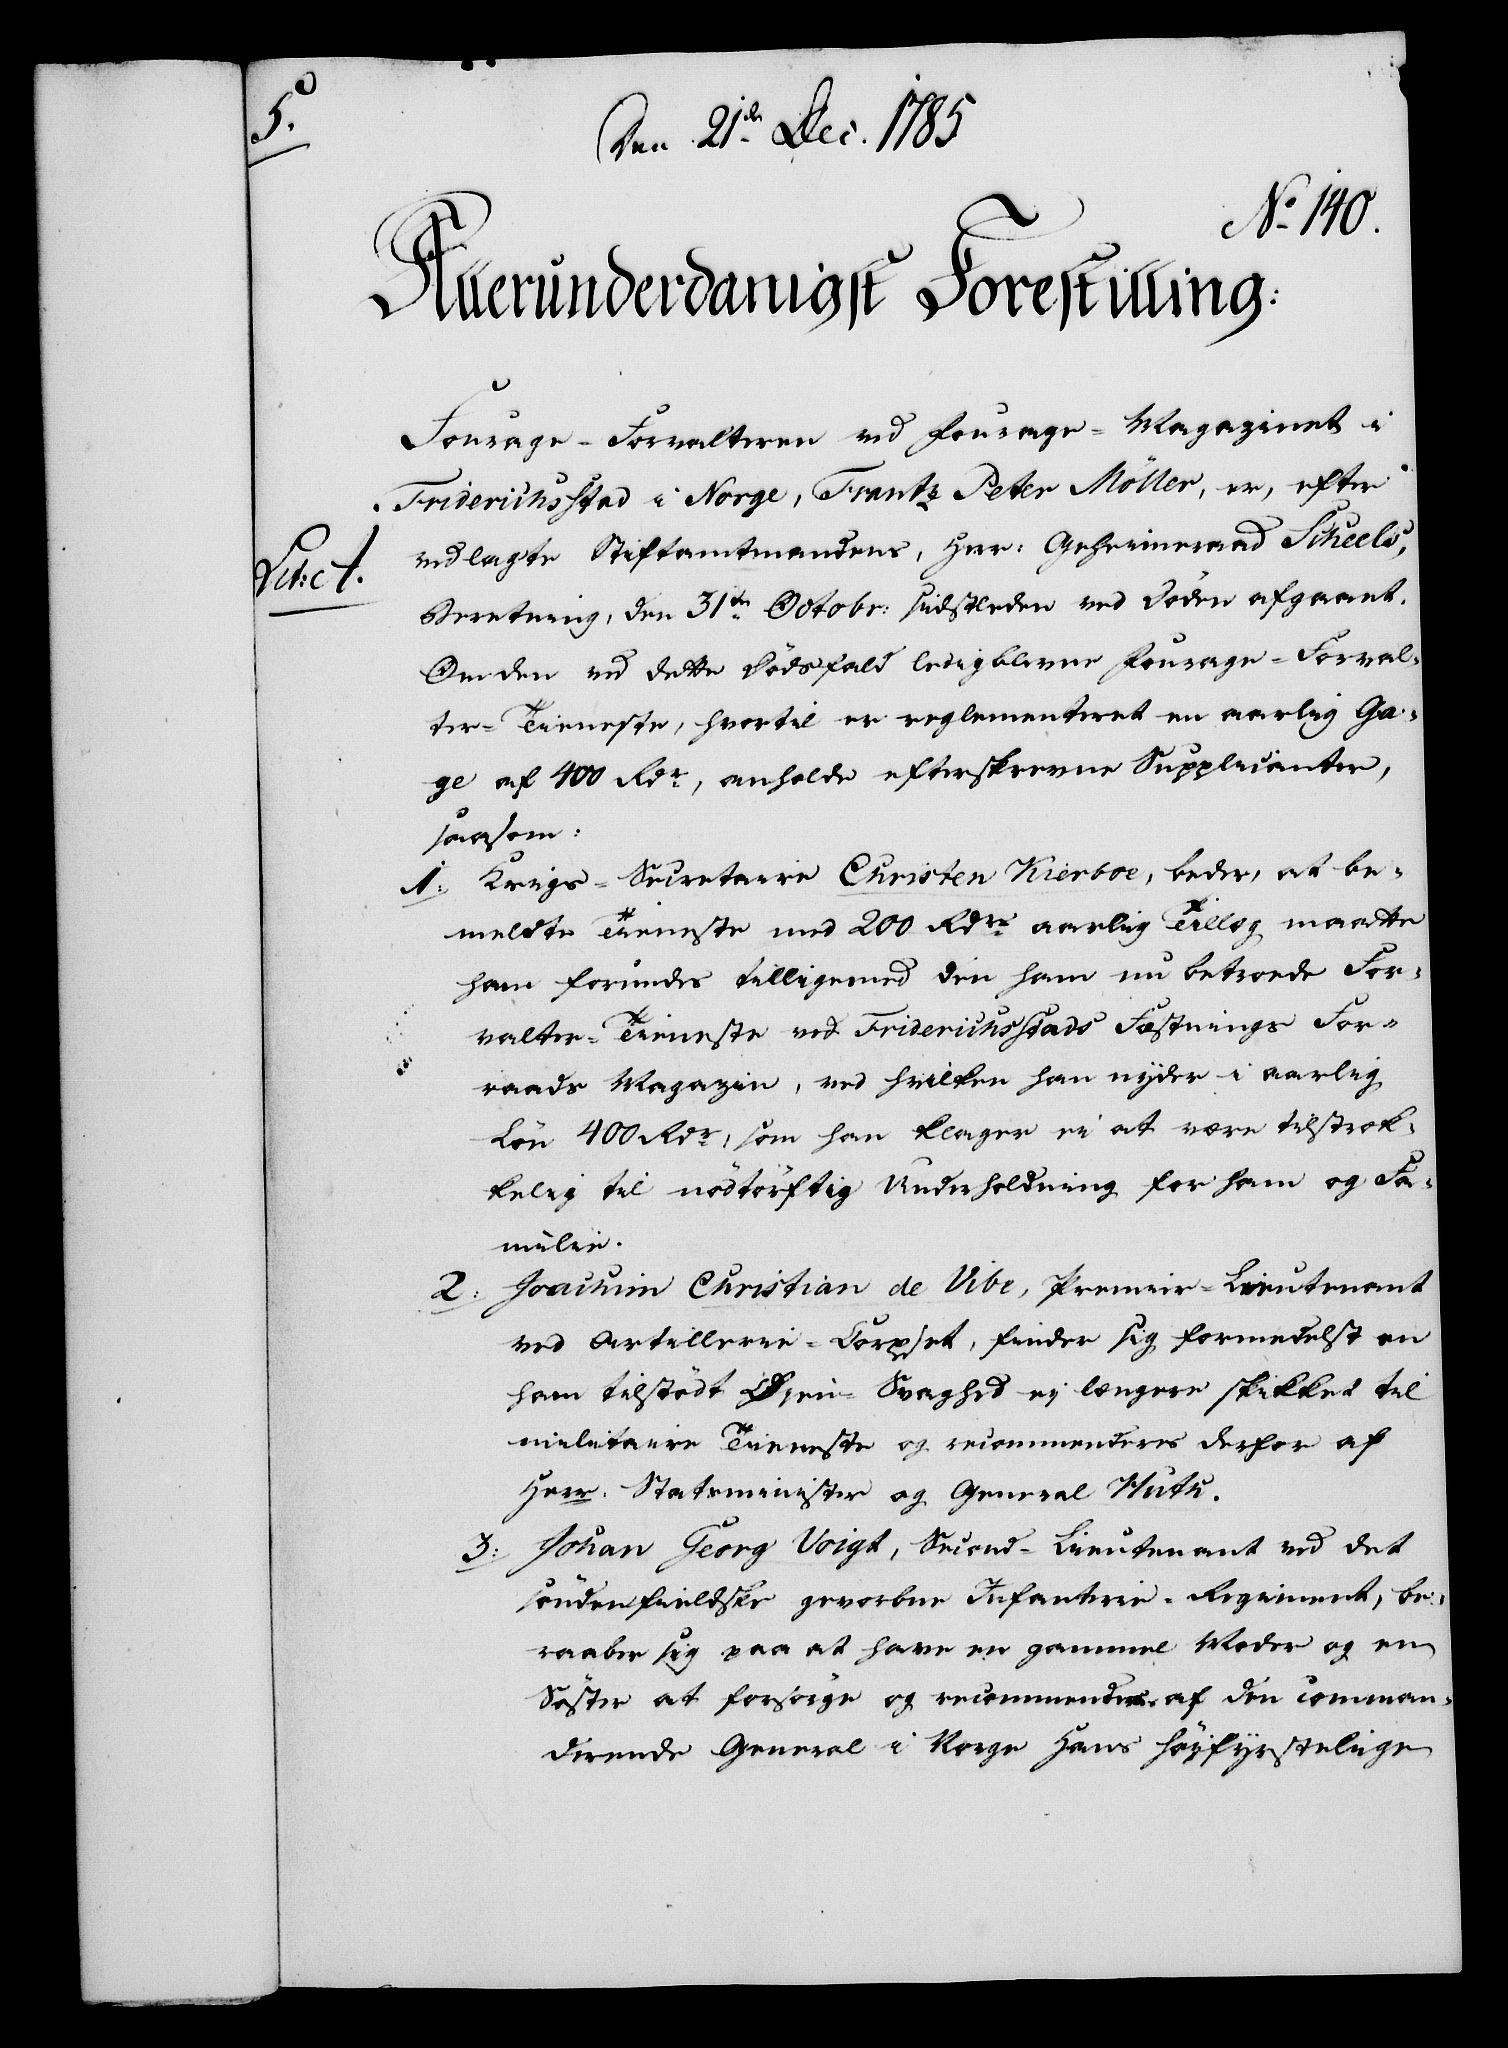 5.
Den 21de Dec. 1785
No 140.
Allerunderdanigst Forestilling:
Fourage-Forvalteren ved Fourage-Magazinet i
Friderichsstad i Norge, Frantz Peter Möller, er, efter
Lit: A.
vedlagte Stiftamtmandens, Herr: Geheimeraad Scheels,
Beretning, den 31te Octobr: sidstleden ved Döden afgaaet.
Om den ved dette Dödsfald ledigblevne Fourage-Forval-
ter-Tieneste, hvortil er reglementeret en aarlig Ga-
ge af 400 Rdr, anholde efterskrevne Supplicanter,
saasom:
1: Krigs-Secretaire Christen Kierboe, beder, at be-
meldte Tieneste med 200 Rdrs aarlig Tillæg maatte
ham forundes tilligemed den ham nu betroede For-
valter-Tieneste ved Friderichsstads Fæstnings For-
raads Magazin, ved hvilken han nyder i aarlig
Lön 400 Rdr, som han klager ei at være tilstræk-
kelig til nödtörftig Underholdning for ham og Fa-
milie.
2: Joachim Christian de Vibe, Premier-Lieutenant
ved Artillerie-Corpset, finder sig formedelst en
ham tilstödt Öjen-Svaghed ej længere skikket til
militaire Tieneste og recommenderes derfor af
Herr: Statsminister og General Huth.
3: Johan Georg Voigt, Second-Lieutenant ved det
söndenfieldske gevorbne Infanterie-Regiment, be-
raaber sig paa at have en gammel Moder og en
Söster at forsörge og recommenderes af den comman-
derende General i Norge Hans höyfyrstelige